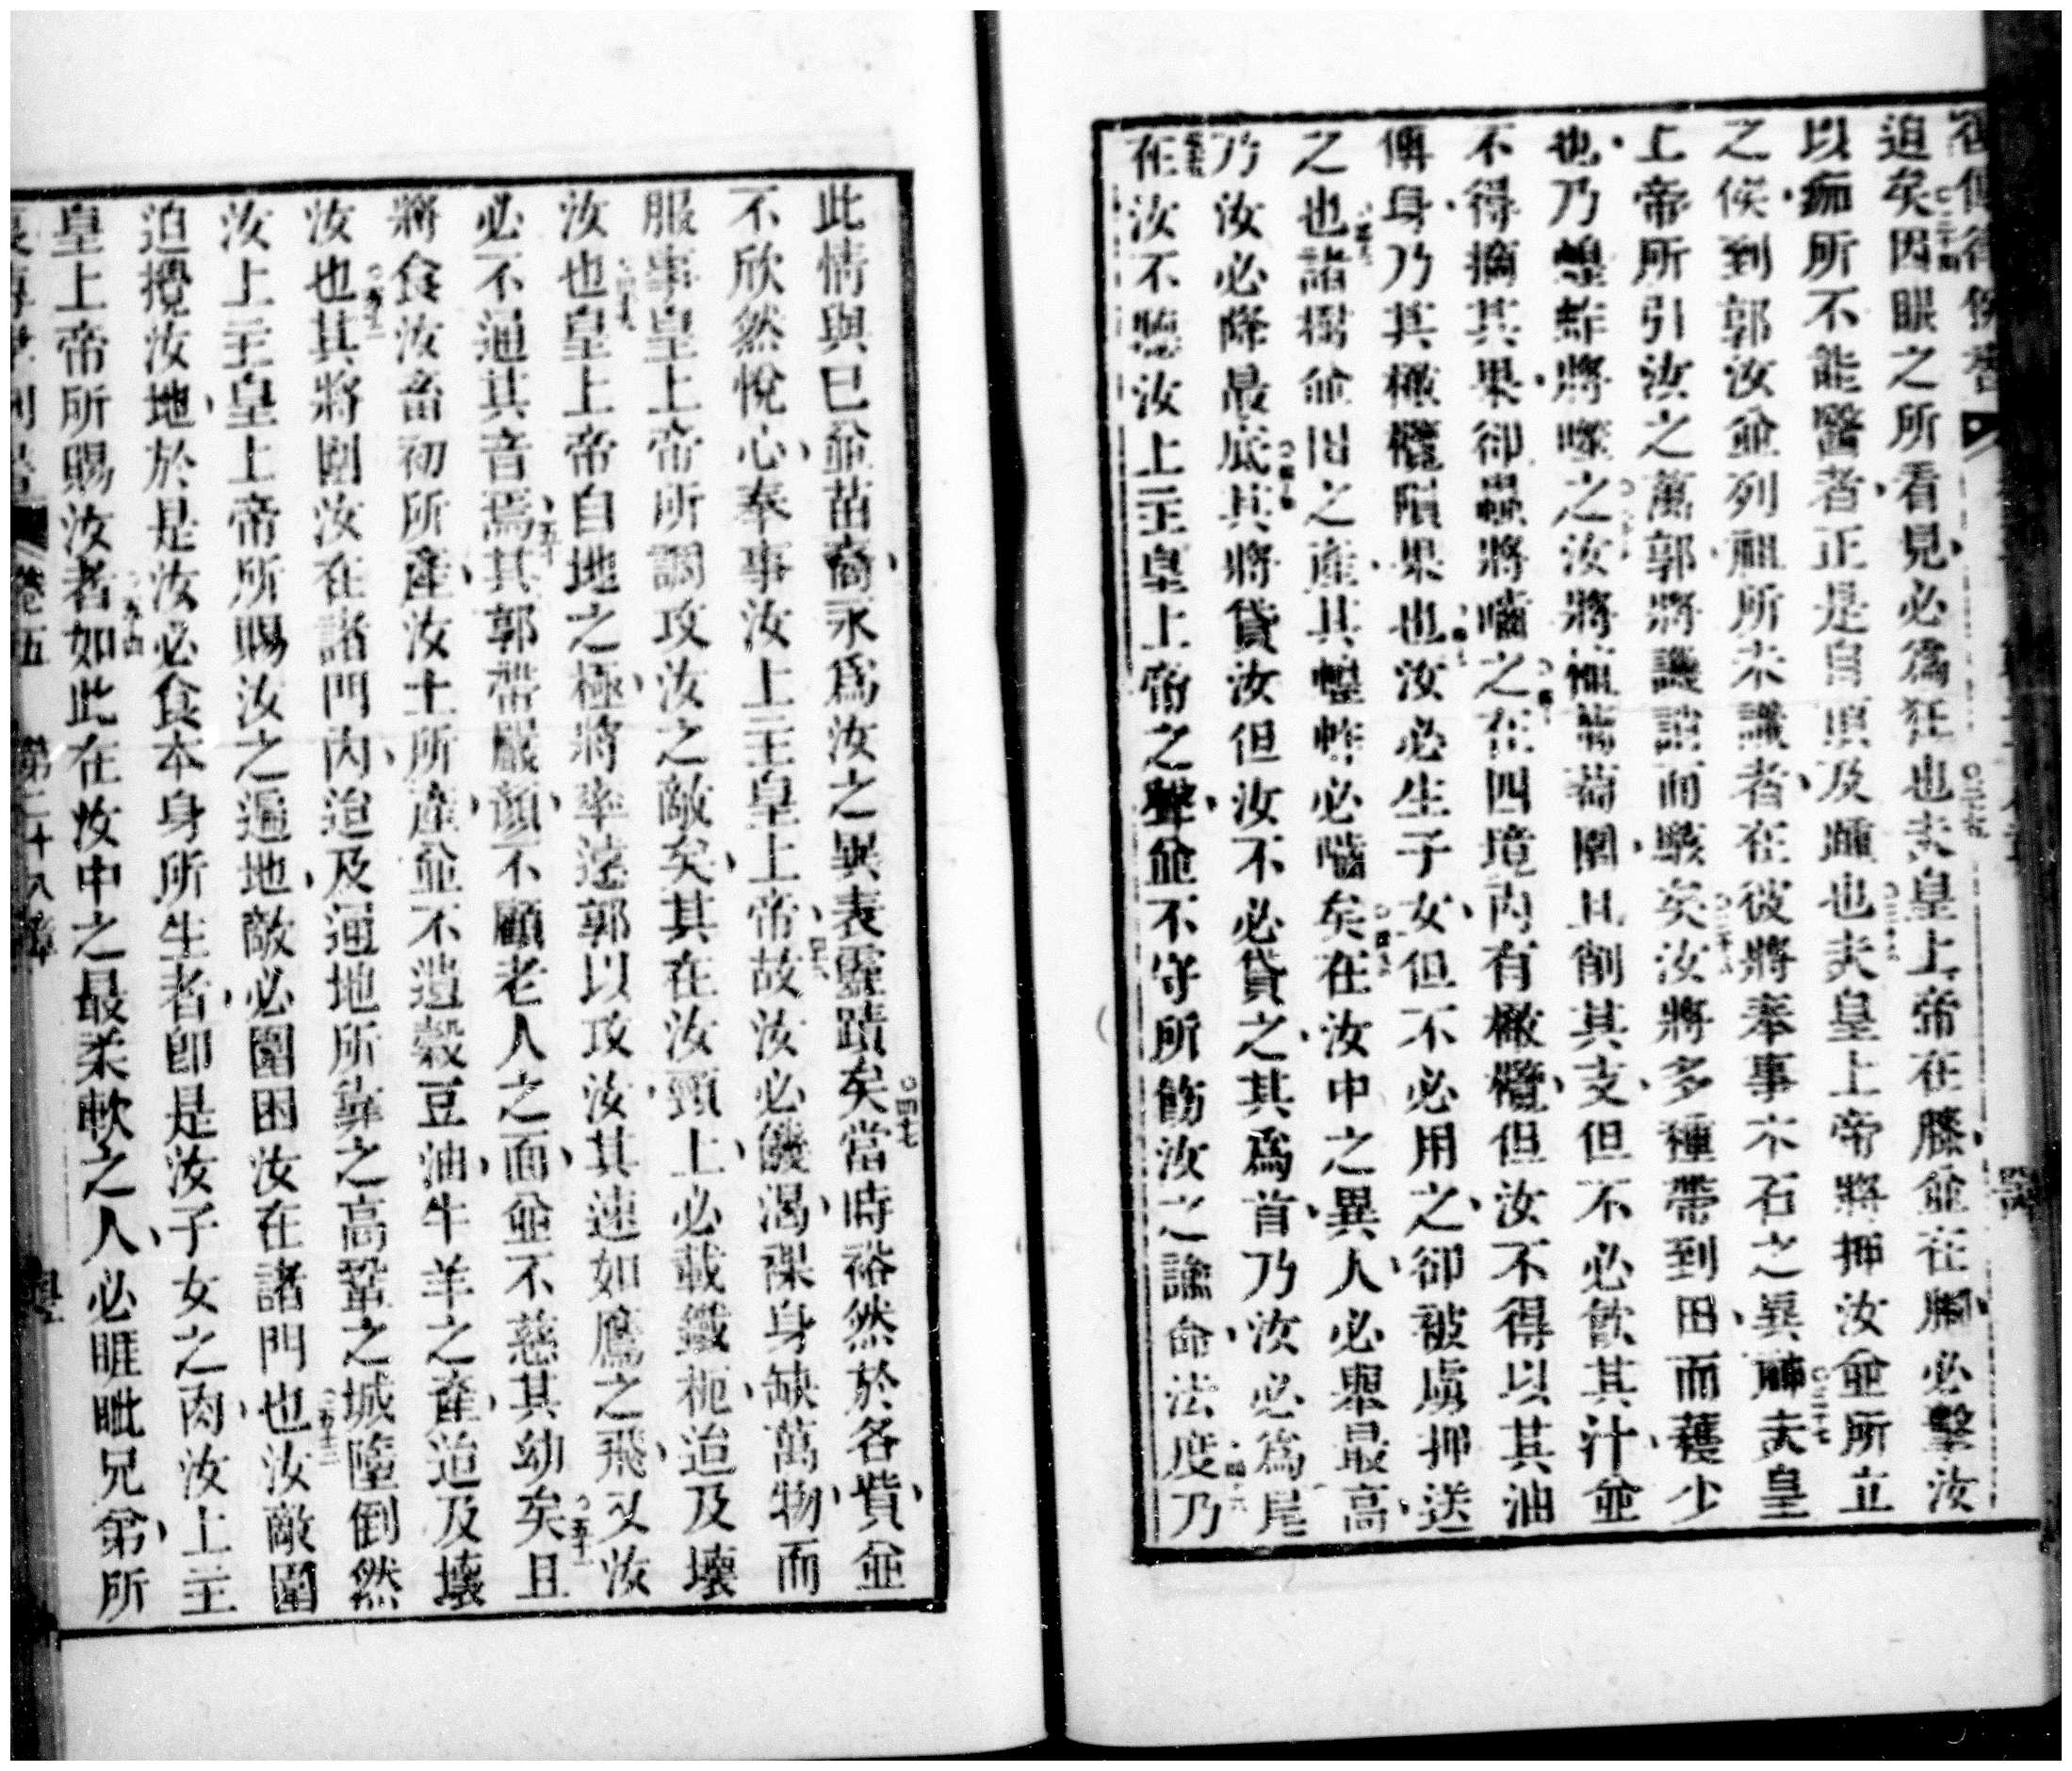 迫矣因眼之所看見必爲狂也夫皇上帝在膝並在脚必擊汝
以痂所不能醫者正是自頂及踵也夫皇上帝將押汝並所立
之候到郭汝並列祖所未識者在彼將奉事木石之異神夫皇
上帝所引汝之萬郭將譏誚而駭矣汝將多種帶到田而穫少
也乃蝗蚱將噬之汝將植葡萄園且削其支但不必飲其汁並
不得摘其果卻蟲將嚙之在四境內有橄欖但汝不得以其油
傅身乃其橄欖隕果也汝必生子女但不必用之卻被虜押送
之也諸樹並田之產其蝗蚱必嚙矣在汝中之異人必舉最高
乃汝必降最底其將貸汝但汝不必貸之其爲首乃汝必爲尾
在汝不聽汝上主皇上帝之聲並不守所飭汝之諭命法度乃
此情與已並苗裔永爲汝之異表靈蹟矣當時裕然於各貲並
不欣然悅心奉事汝上主皇上帝故汝必饑渴裸身缺萬物而
服事皇上帝所調攻汝之敵矣其在汝頸上必載鐵枙迨及壞
汝也皇上帝自地之極將率遠郭以攻汝其速如鷹之飛又汝
必不通其音焉其郭帶嚴顔不顧老人之面並不慈其幼矣且
將食汝畜初所產汝土所產並不遺穀豆油牛羊之產迨及壞
汝也其將圍汝在諸門內迨及通地所靠之高鞏之城隳倒然
汝上主皇上帝所賜汝之遍地敵必圍困汝在諸門也汝敵圍
迫攪汝地於是汝必食本身所生者卽是汝子女之肉汝上主
皇上帝所賜汝者如此在汝中之最柔軟之人必睚眦兄弟所
卷五 第二十八章